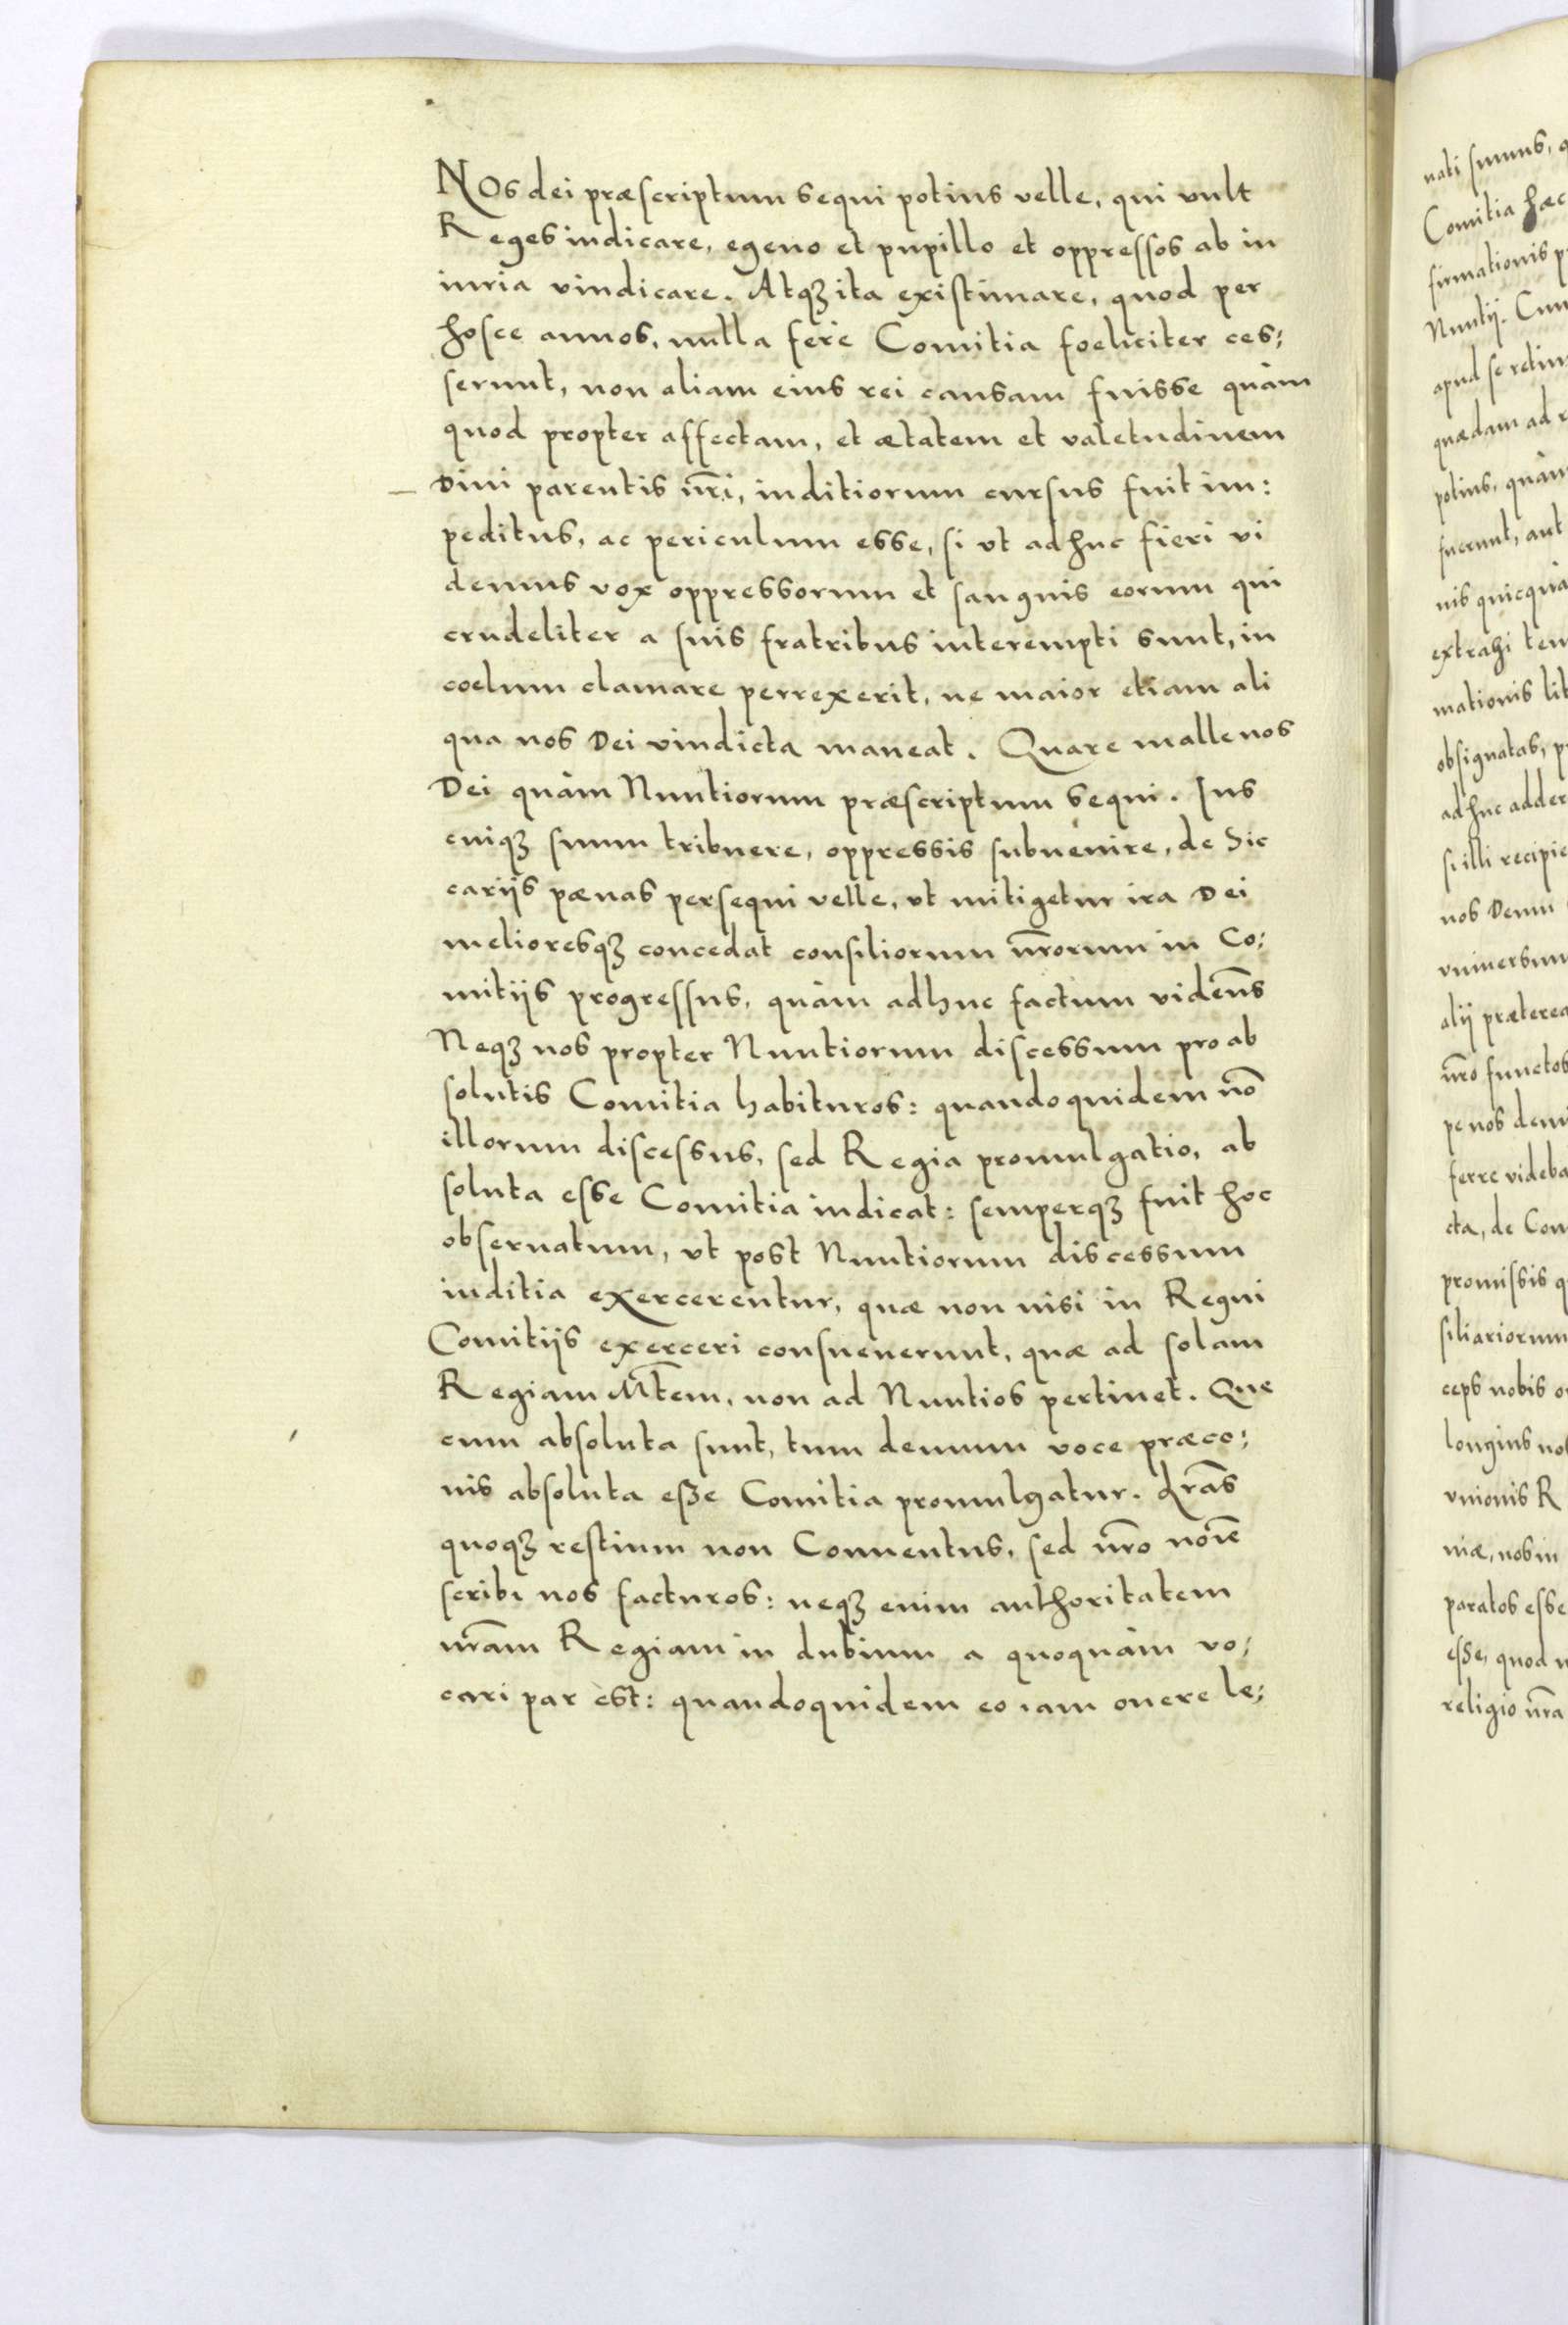 NOs dei præscriptum sequi potius velle, qui vult
Reges iudicare, egeno et pupillo et oppressos ab in
iuria vindicare. Atq₃ ita existimare, quod per
hosce annos, nulla ferè Comitia foeliciter ces;
serunt, non aliam eius rei causam fuisse quàm
quod propter affectam, et ætatem et valetudinem
Diui parentis nr̄i, iuditiorum cursus fuit im:
peditus, ac periculum esse, si vt adhuc fieri vi
demus vox oppressorum et sanguis eorum qui
crudeliter a suis fratribus interempti sunt, in
coelum clamare perrexerit, ne maior etiam ali
qua nos Dei vindicta maneat. Quare malle nos
Dei quàm Nuntiorum præscriptum sequi. Ius
cuiq₃ suum tribuere, oppressis subuenire, de Sic
carijs pænas persequi velle, vt mitigetur ira Dei
melioresq₃ concedat consiliorum nr̄orum in Co:
mitijs progressus, quàm adhuc factum videm̄s
Neq₃ nos propter Nuntiorum discessum pro ab
solutis Comitia habituros: quandoquidem nō
illorum discessus, sed Regia promulgatio, ab
soluta esse Comitia indicat: semperq₃ fuit hoc
obseruatum, vt post Nuntiorum discessum
iuditia exercerentur, quæ non nisi in Regni
Comitijs exerceri consueuerunt, quæ ad solam
Regiam Mt̄em, non ad Nuntios pertinet. Que
cum absoluta sunt, tum demum voce præco:
nis absoluta esse Comitia promulgatur. Lr̄as
quoq₃ restium non Conuentus, sed nr̄o noīe
scribi nos facturos: neq₃ enim authoritatem
nr̄am Regiam in dubium a quoquàm vo;
cari par est: quandoquidem eo iam onere le;
nati sumus,
Comitia hæc
firmationis
Nuntij.
apud se
quædam ad
potius, quàm
fuerunt, aut
nis
extrahi
mationis
obsignatas,
adhuc
si illi
nos Deum
alij
nr̄o functos
pe nos
ferre
cta, de
promissis
ceps nobis
longius
vnionis R
niæ, nos in
paratos esse
esse, quod
religio nr̄a